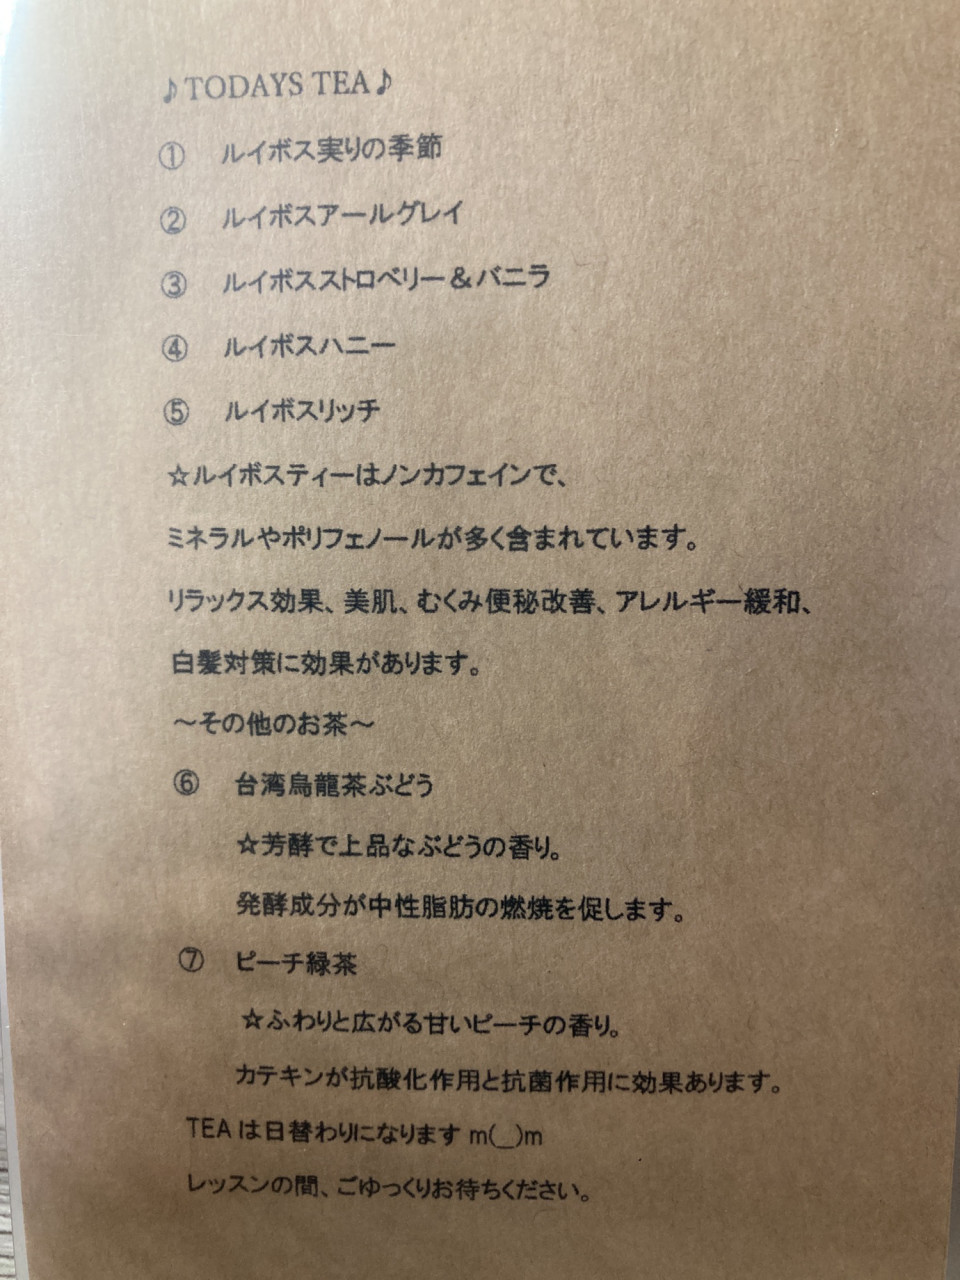 ♪TODAYS TEA♪
① ルイボス実りの季節
② ルイボスアールグレイ
③ ルイボスストロベリー＆バニラ
④ ルイボスハニー
⑤ ルイボスリッチ
☆ルイボスティーはノンカフェインで、
ミネラルやポリフェノールが多く含まれています。
リラックス効果、美肌、むくみ便秘改善、アレルギー緩和、
白髪対策に効果があります。
～その他のお茶～
⑥ 台湾烏龍茶ぶどう
☆芳酵で上品なぶどうの香り。
発酵成分が中性脂肪の燃焼を促します。
⑦ ピーチ緑茶
☆ふわりと広がる甘いピーチの香り。
カテキンが抗酸化作用と抗菌作用に効果あります。
TEA は日替わりになります m(__)m
レッスンの間、ごゆっくりお待ちください。